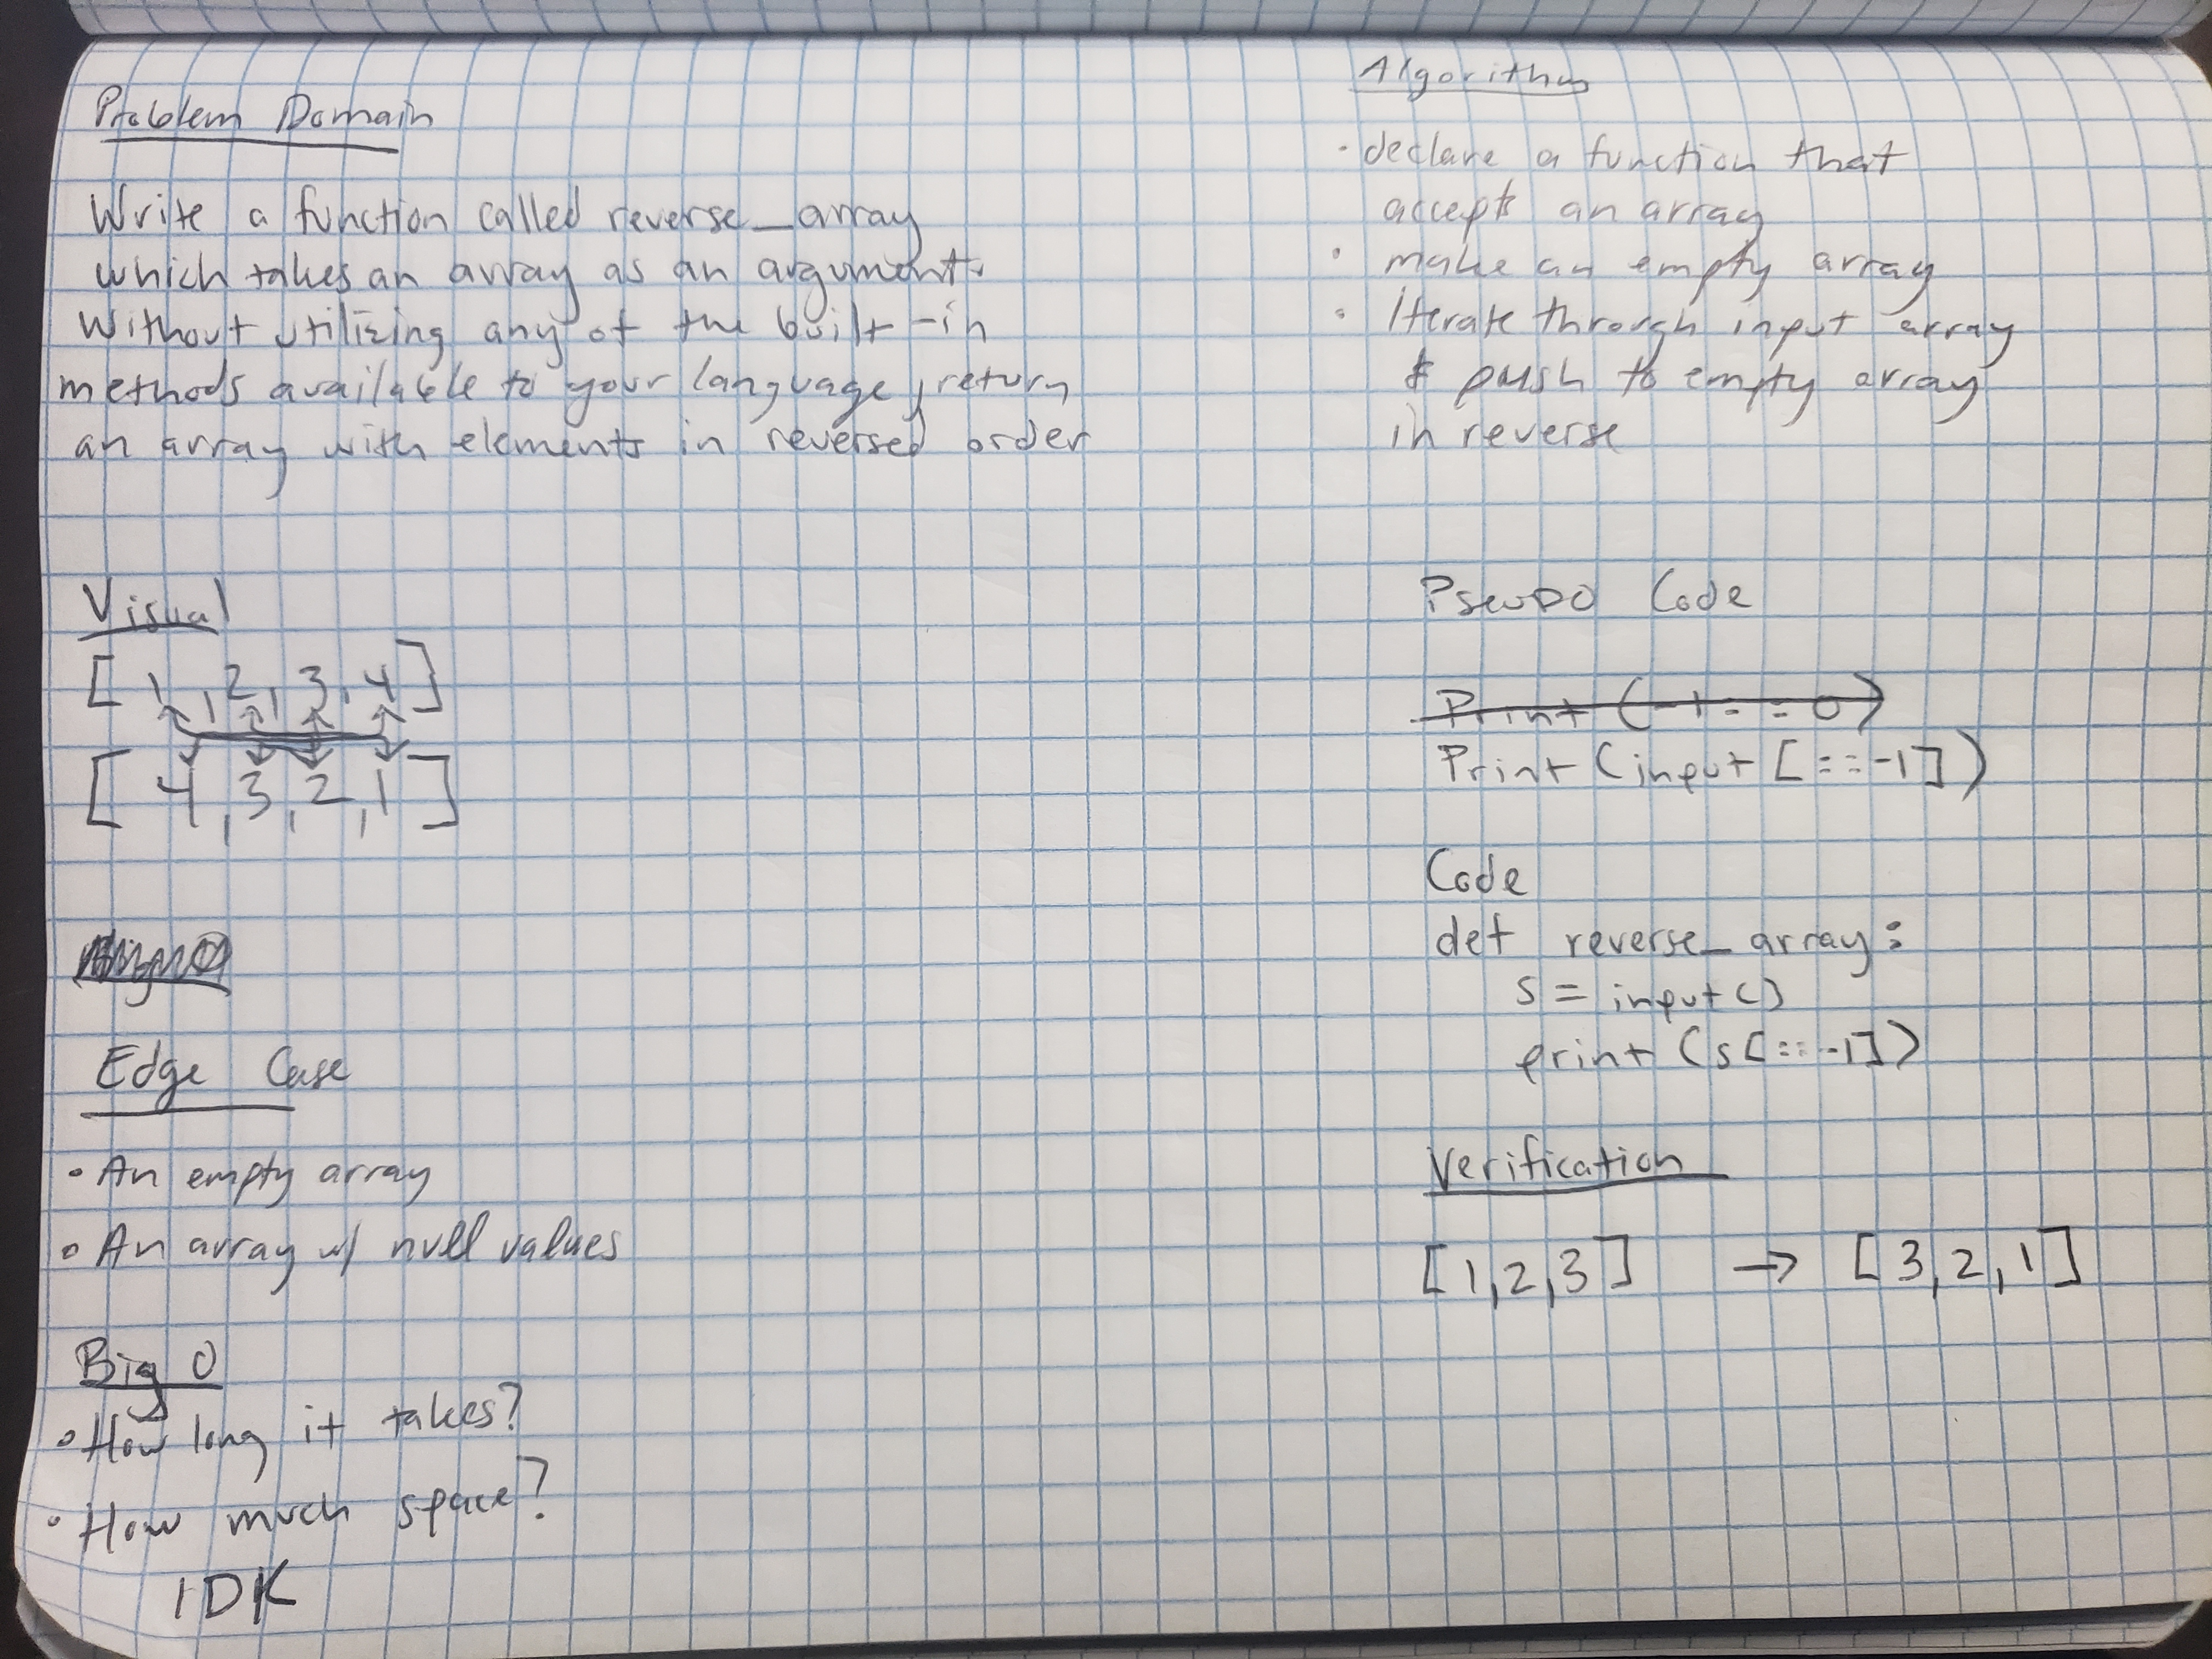 Problem Domain
Write a function called reverse_array
which takes an array as an argument.
Without utilizing any of the built-in
methods available to your language, return
an array with elements in reversed order
Visual
[1, 2, 3, 4]
[4, 3, 2, 1]
Edge Case
• An empty array
• An array w/ null values
Big O
• How long it takes?
• How much space?
IDK
Algorithm
• declare a function that
accept an array
• make an empty array
• iterate through input array
& push to empty array
in reverse
Pseudo Code
Print(-1:-:0)
Print(input[::-1])
Code
def reverse_array:
s = input()
print(s[::-1])
Verification
[1,2,3] → [3,2,1]